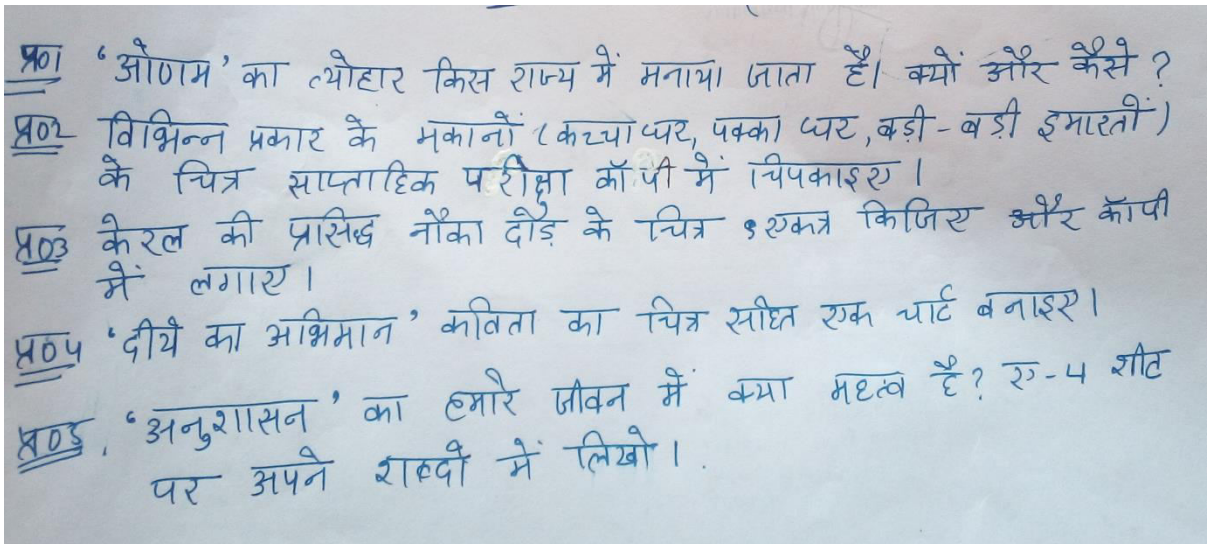 प्र०1 'ओणम' का त्योहार किस राज्य में मनाया जाता है। क्यों और कैसे ?
प्र०2 विभिन्न प्रकार के मकानों (कच्चा घर, पक्का घर, बड़ी-बड़ी इमारतों)
के चित्र साप्ताहिक परीक्षा कॉपी में चिपकाइए ।
प्र०3 केरल की प्रसिद्ध नौका दौड़ के चित्र एकत्र किजिए और कॉपी
में लगाए ।
प्र०4 'दीये का अभिमान' कविता का चित्र सहित एक चार्ट बनाइए ।
प्र०5. 'अनुशासन' का हमारे जीवन में क्या महत्व है? ए-4 शीट
पर अपने शब्दो में लिखो ।